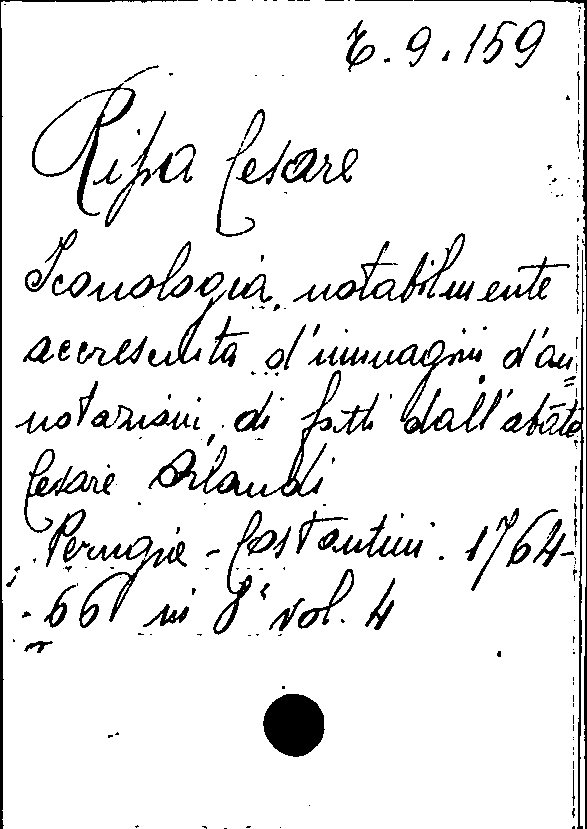 E.9.159
Ripa Cesare
Iconologia, notabilmente
accresciuta d'immagini, d'an=
notazioni, di fatti dall'abate
Cesare Orlandi
Perugia - Costantini. 1764-
-66 in 8° vol. 4